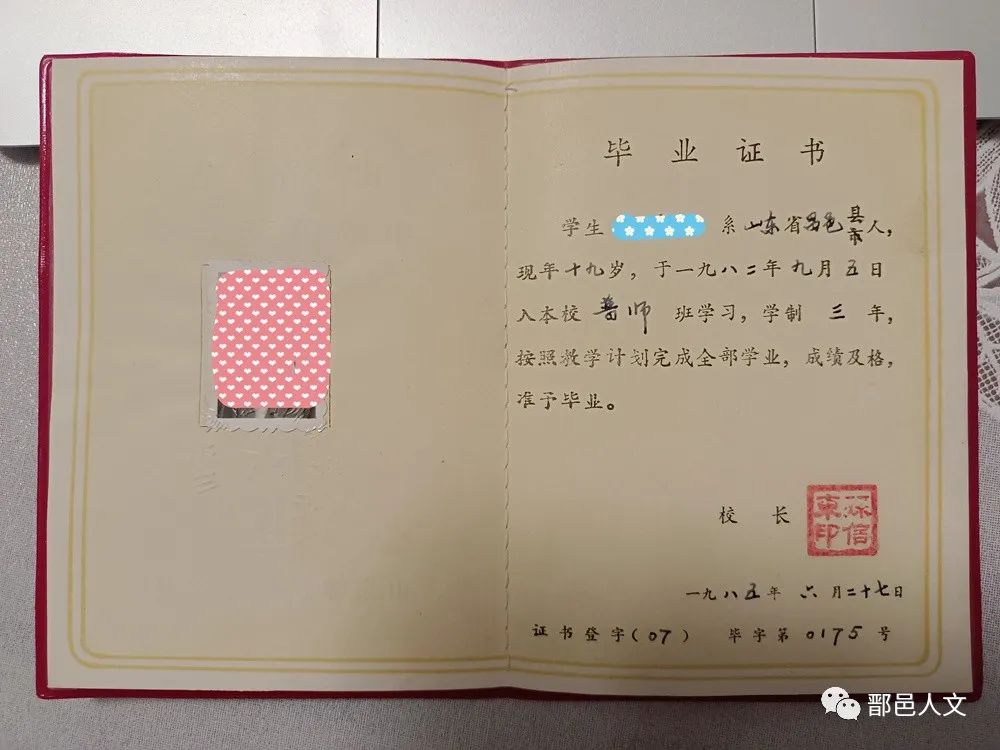 毕业证书
学生 系山东省昌邑县市人，
现年十九岁，于一九八二年九月五日
入本校普师班学习，学制三年，
按照教学计划完成全部学业，成绩及格，
准予毕业。
校长
一九八五年六月二十七日
证书登字(07) 毕字第0175号
鄑邑人文